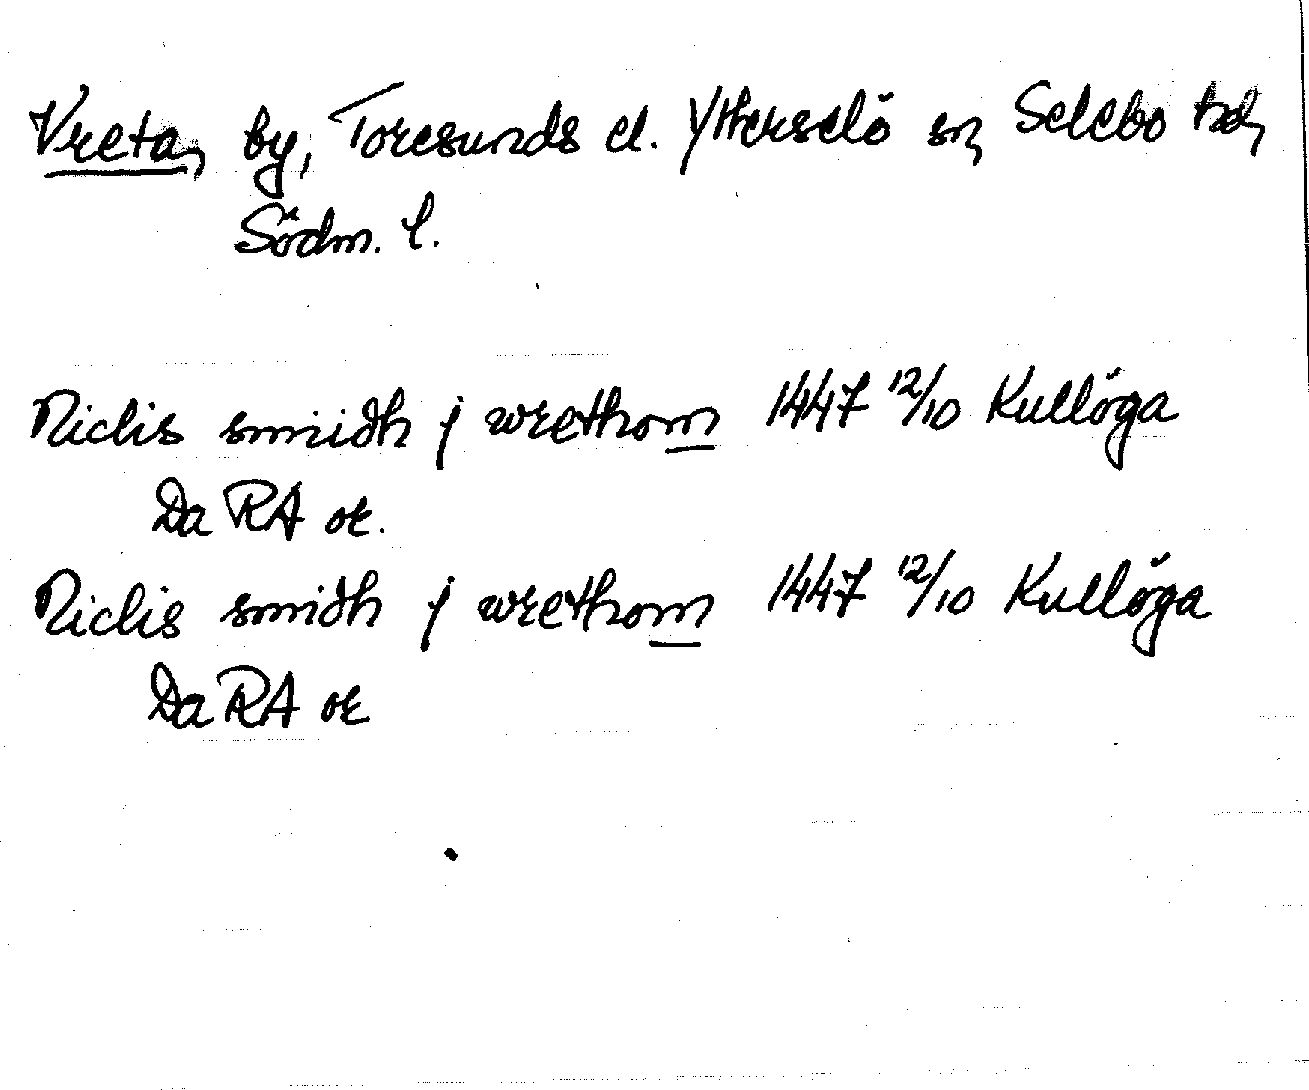 Vreta, by, Toresunds el. Ytterselö sn, Selebo hd,
Södm. l.
Niclis smiidh j wrethom 1447 12/10 Kullöga
Da RA or.
Niclis smidh j wrethom 1447 12/10 Kullöga
Da RA or